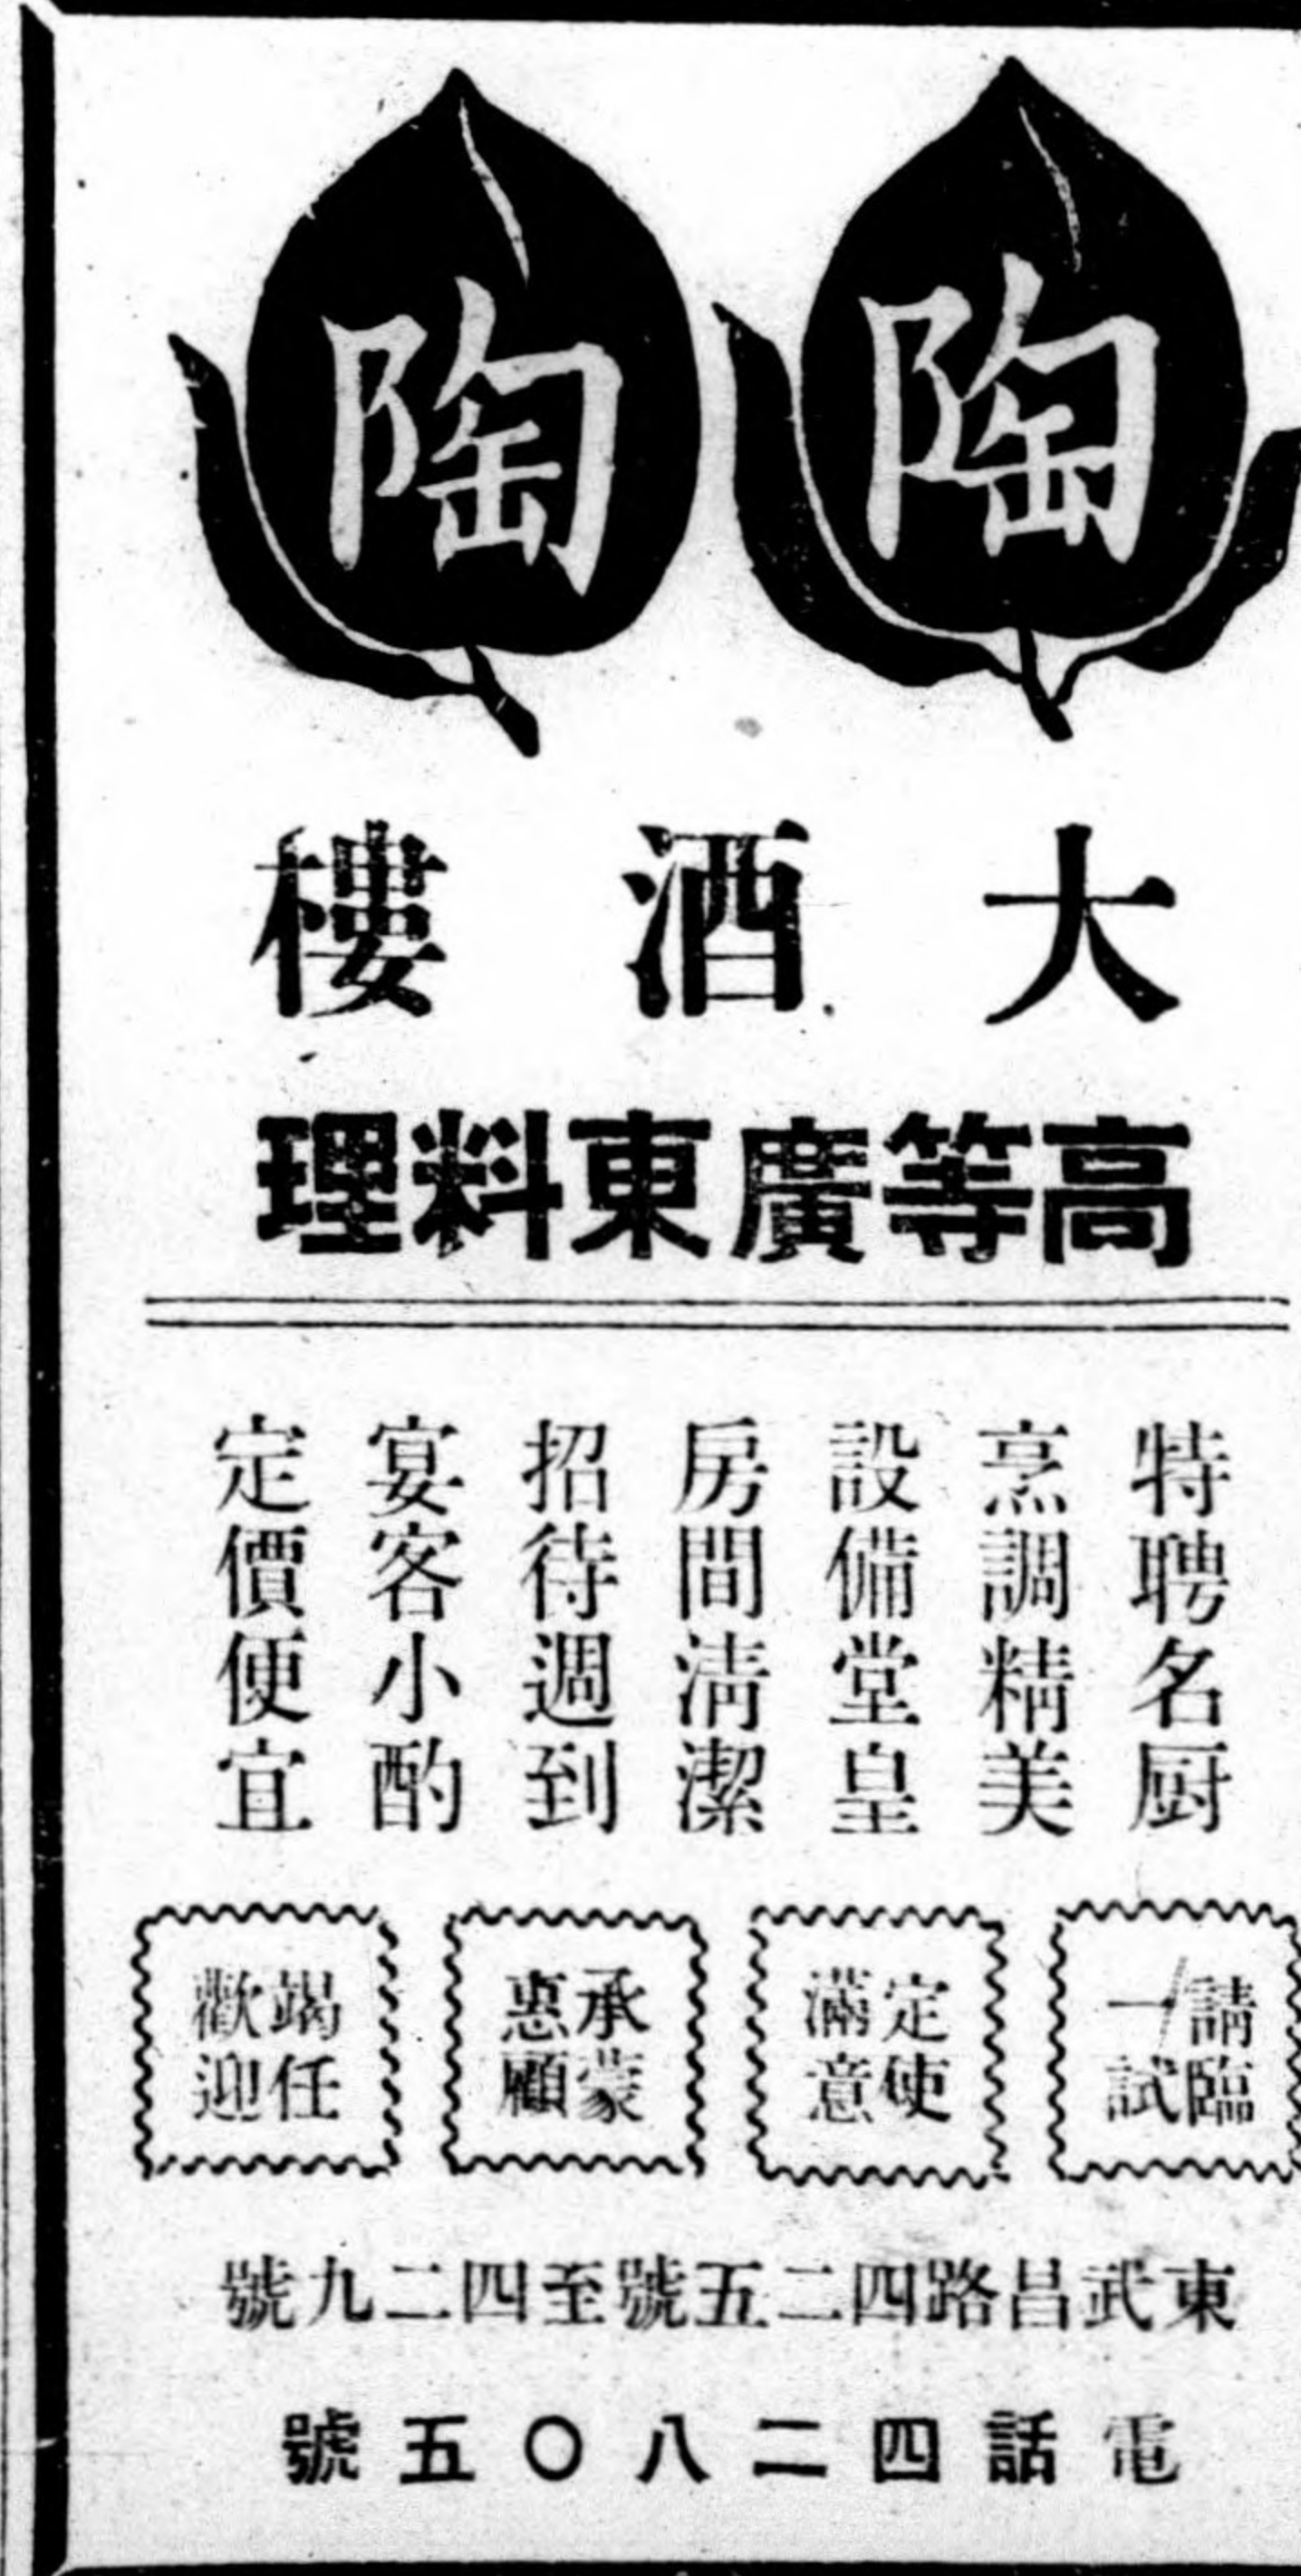 陶陶
大酒樓
高等廣東料理
特聘名厨
烹調精美
設備堂皇
房間清潔
招待週到
宴客小酌
定價便宜
請臨
一試
定使
滿意
承蒙
惠顧
竭任
歡迎
東武昌路四二五號至四二九號
電話四二八〇五號